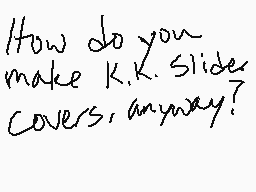 How do you
make K.K. Slider
covers, anyway?